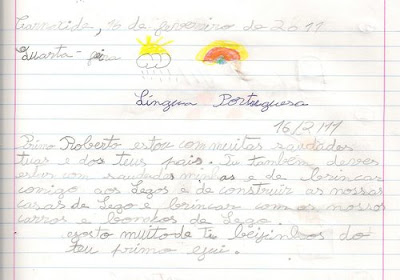 Carnaxide, 16 de fevereiro de 2011
Quarta-feira
Língua Portuguesa
16/2/11
Primo Roberto estou com muitas saudades
tuas e dos teus pais. Tu também deves
estar com saudades minhas e de brincar
comigo aos Legos e de construir as nossas
casas de Lego e brincar com os nossos
carros e bonecos de Lego.
gosto muito de ti beijinhos do
teu primo